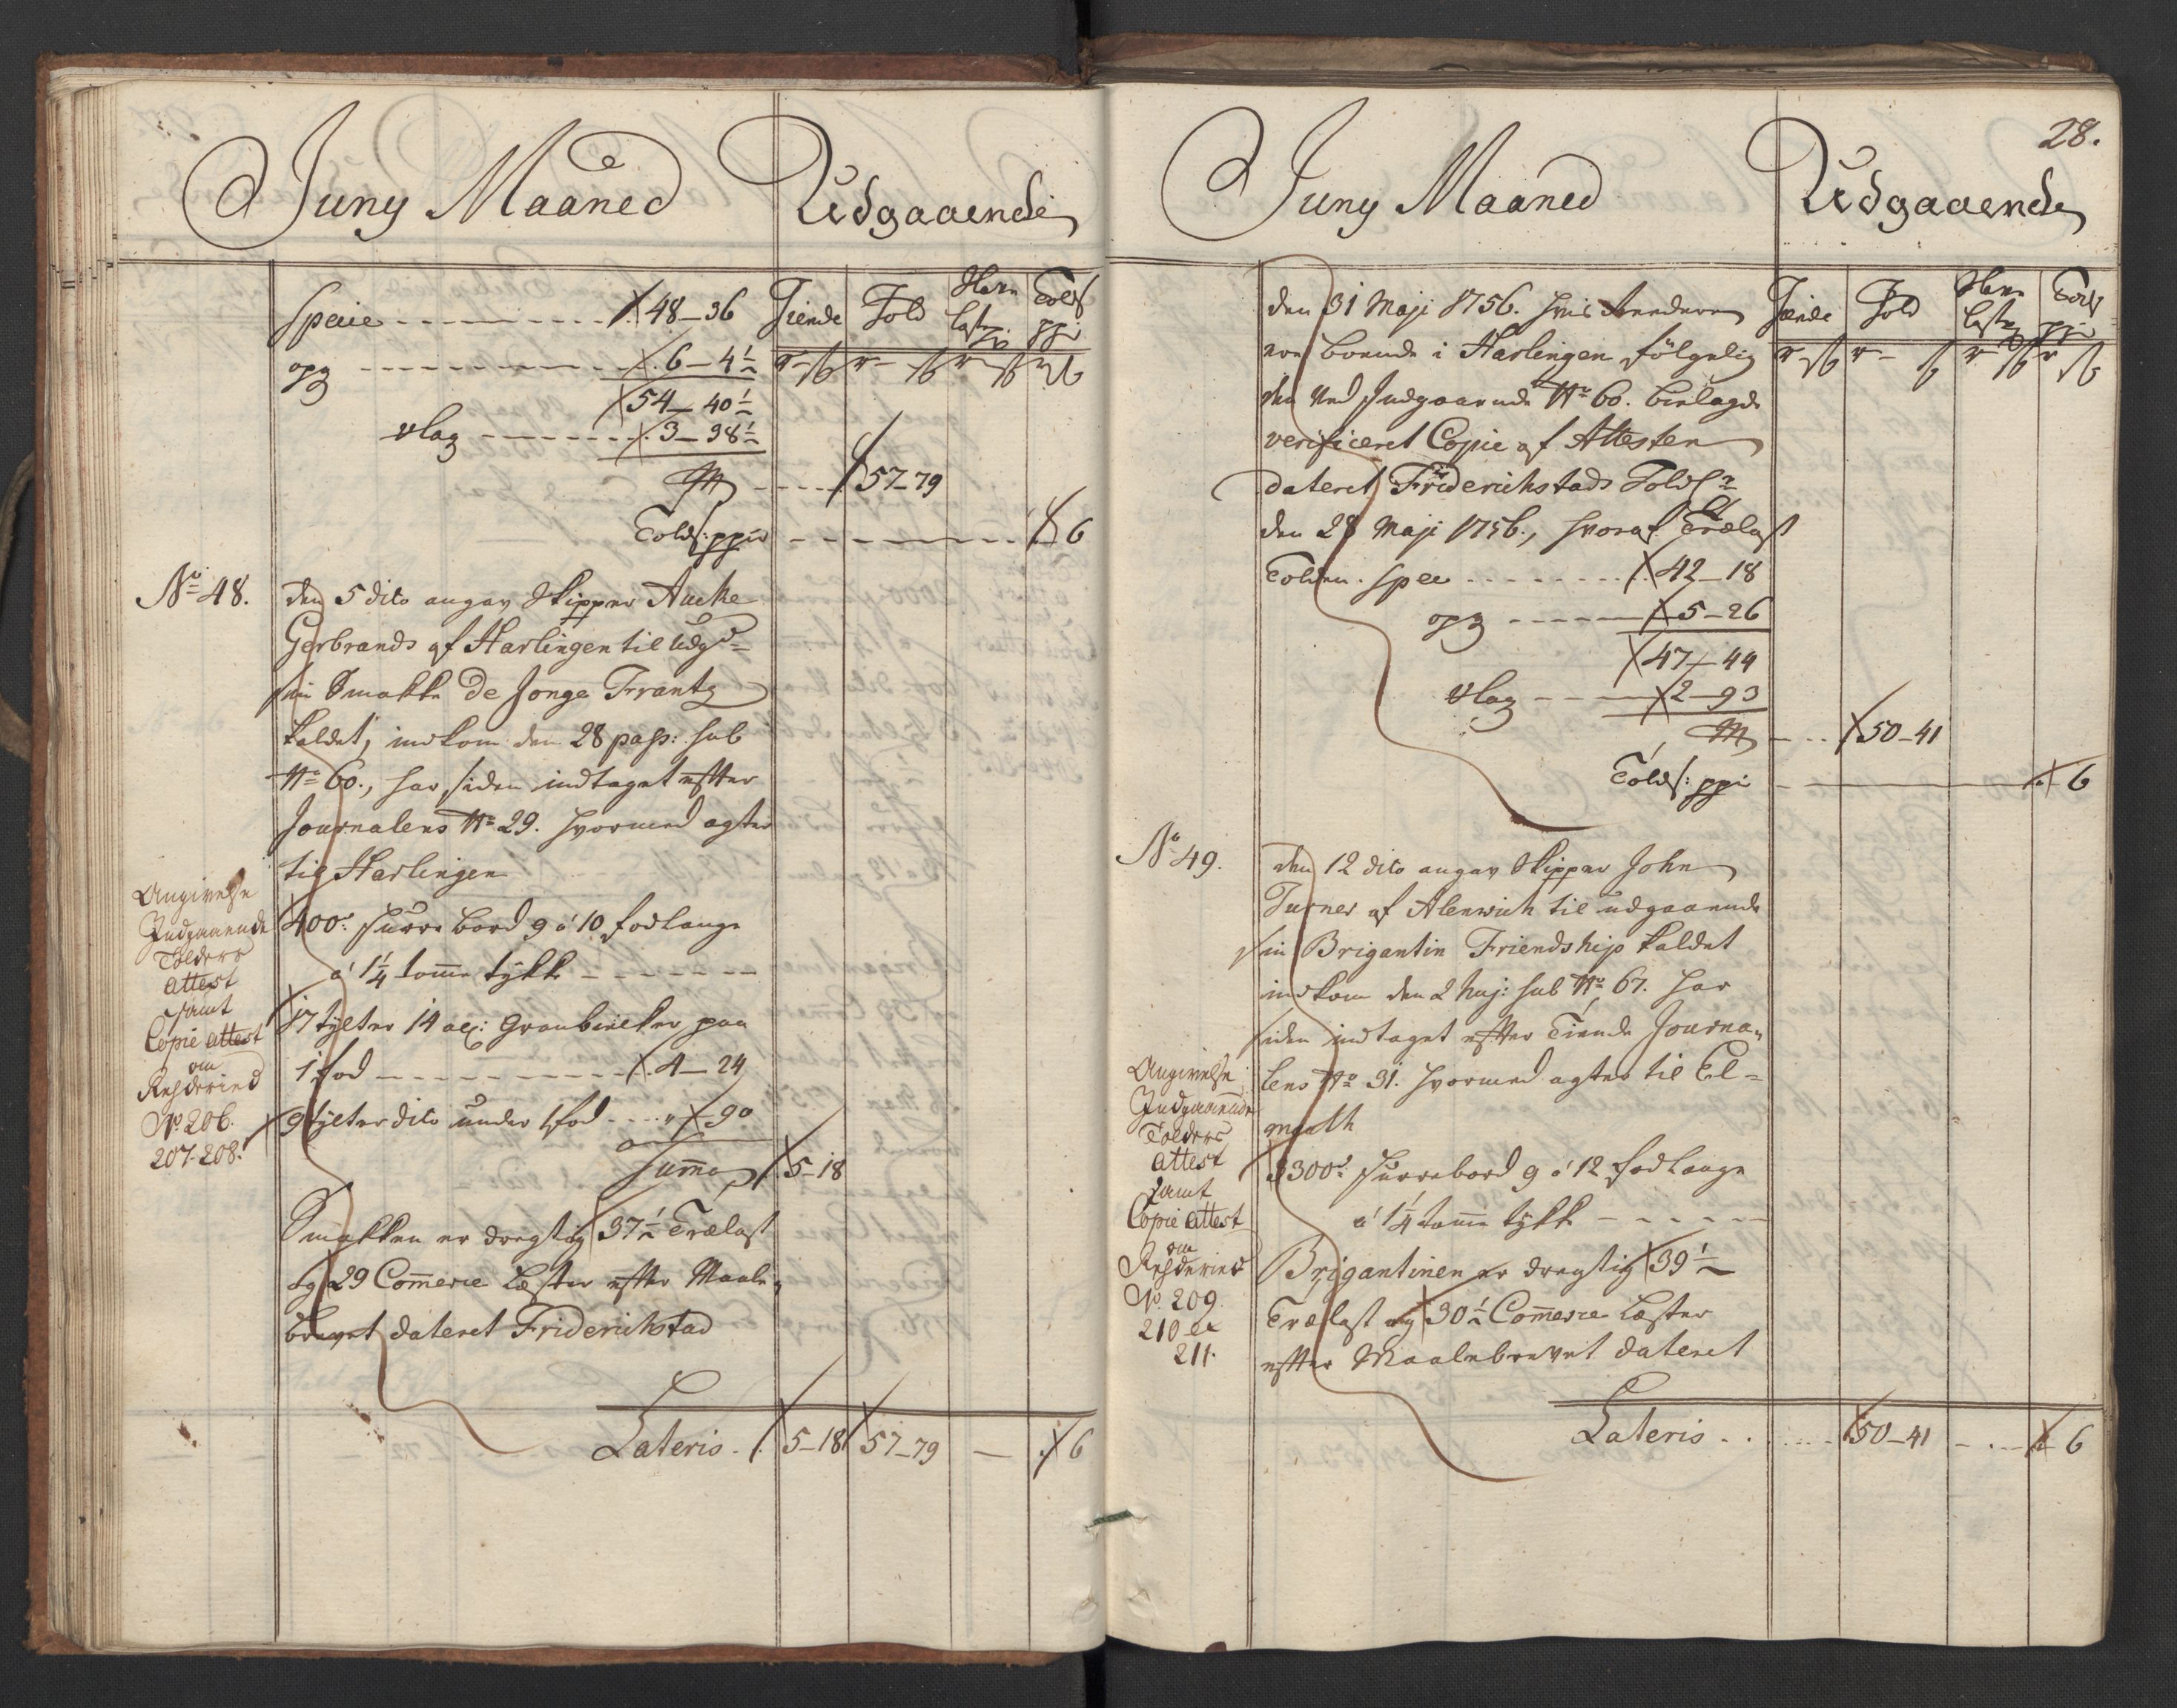 Juny Maaned Udgaaende
Tiende Told Havn Lastp: Tolds: ppir
Specie - - - 48-36
opg - - - 6-4½
54-40½
vlag - - - 3-38½
57-79
Tolds: ppir - - - 6
No 48. den 5 dito angav Skipper Aucke
Gerbrands af Harlingen til udg:
sin Smakke De Jonge Frantz
kaldet, indkom den 28 pass: sub
No 60., har siden indtaget efter
Journalens No 29. hvormed agter
til Harlingen
Angivelse
Indgaaende
Tolders
attest
samt
Copie attest
om
Rhederied
No 206.
207. 208.
400: Furre bord 9 á 10 fod lange
á 1¼ tomme tykk - - -
17 tylter 14 al: Graubielker paa
1 fod - - - 4-24
9 tylter dito under 1 fod - - - 90
Summa 5-18
Smakken er drægtig 37½ Trælast
og 29 Commerce Læster efter Maale
brevet dateret Friderichstad
Lateris - 5-18 57-79 - 6
28.
Juny Maaned Udgaaende
Tiende Told Havn Lastp: Tolds ppir
den 31 Maji 1756. hvis Rendere
ere boende i Harlingen følgelig
den ved Indgaaende No 60. bielagde
verificeret Copie af Attesten
dateret Friderichstads Tolds:
den 28 Maji 1756., hvoraf Trælast
Tolden. Spec - - - 42-18
opg - - - 5-26
47-44
vlag - - - 2-93
50-41
Tolds: ppir - - - 6
No 49. den 12 dito angav Skipper John
Turner af Alenwich til udgaaende
sin Brigantin Friendship kaldet
indkom den 2 huj: sub No 67. har
siden indtaget efter Tiende Journa-
lens No 31. hvormed agter til El-
mouth
Angivelse
Indgaaende
Tolders
attest
samt
Copie attest
om
Rhederied
No. 209.
210 et
211.
3300: Furrebord 9 á 12 fod lange
á 1¼ tomme tykk - - -
Brigantinen er drægtig 39½
Trælast og 30½ Commerce Læster
efter Maalebrevet dateret
Lateris - - - 50-41 - - - 6